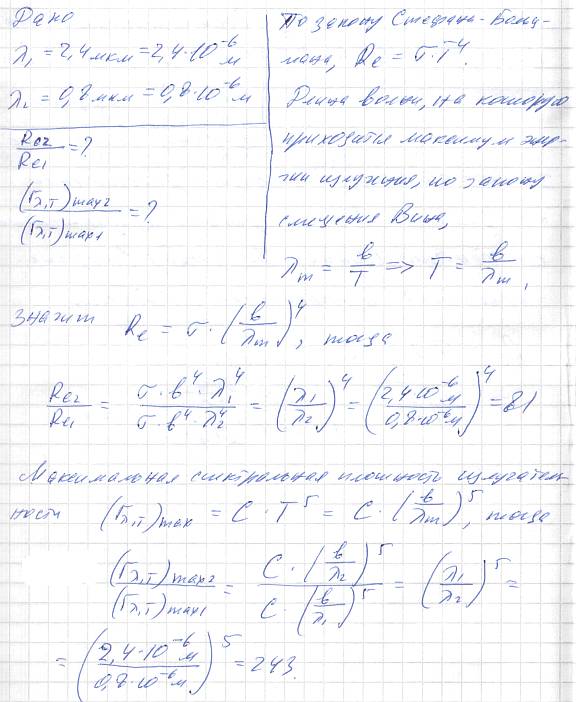 Дано
λ₁ = 2,4 мкм = 2,4·10⁻⁶ м
λ₂ = 0,8 мкм = 0,8·10⁻⁶ м
Re2/Re1 = ?
(rλ,T)max2/(rλ,T)max1 = ?
По закону Стефана-Больц-
мана, Re = σ·T⁴.
Длина волны, на которую
приходится максимум энер-
гии излучения, по закону
смещения Вина,
λm = в/T => T = в/λm,
значит Re = σ·(в/λm)⁴, тогда
Re2/Re1 = σ·в⁴·λ₁⁴/σ·в⁴·λ₂⁴ = (λ₁/λ₂)⁴ = (2,4·10⁻⁶ м/0,8·10⁻⁶ м)⁴ = 81
Максимальная спектральная плотность излучатель-
ности (rλ,T)max = C·T⁵ = C·(в/λm)⁵, тогда
(rλ,T)max2/(rλ,T)max1 = C·(в/λ₂)⁵/C·(в/λ₁)⁵ = (λ₁/λ₂)⁵ =
= (2,4·10⁻⁶ м/0,8·10⁻⁶ м)⁵ = 243.